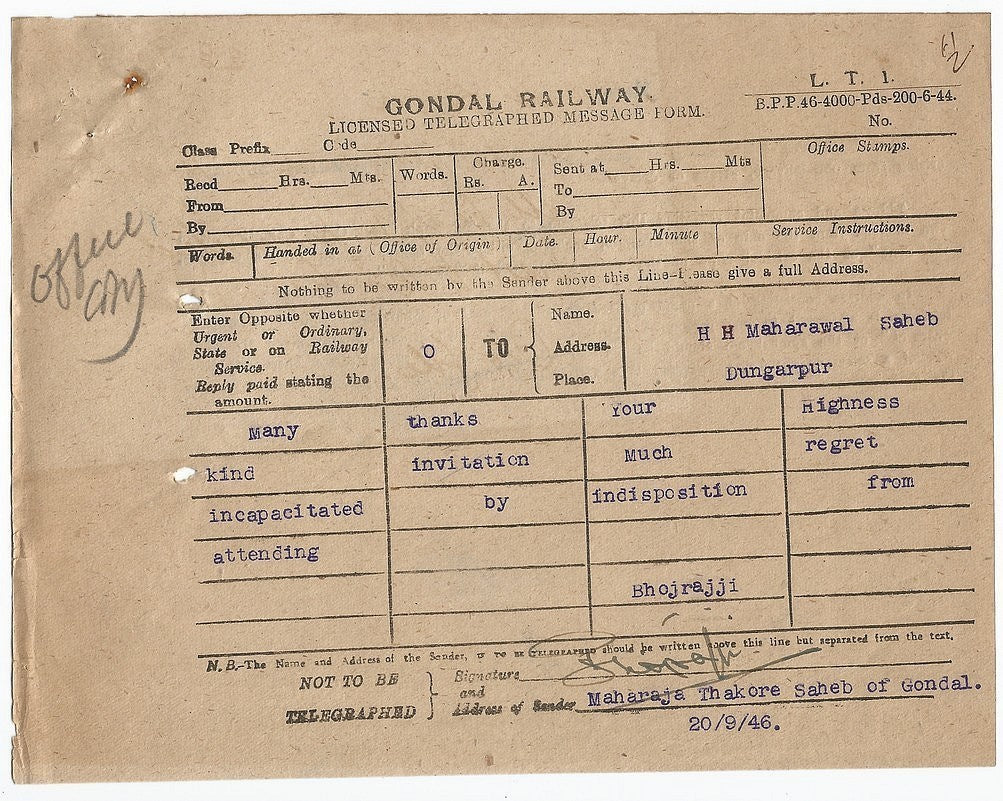 L. T. 1.
GONDAL RAILWAY.
B.P.P.46-4000-Pds-200-6-44.
LICENSED TELEGRAPHED MESSAGE FORM.
No.
Class Prefix____ Code____
Office Stamps.
Recd____Hrs.____Mts. Words. Charge. Sent at____Hrs.____Mts
Rs. A.
From____ To____
By____ By____
Words. Handed in at (Office of Origin) Date. Hour. Minute Service Instructions.
Nothing to be written by the Sender above this Line-Please give a full Address.
Office
Copy
Enter Opposite whether
Urgent or Ordinary,
State or on Railway
Service.
Reply paid stating the
amount.
O
TO
Name.
Address.
Place.
H H Maharawal Saheb
Dungarpur
Many thanks Your Highness
kind invitation Much regret
incapacitated by indisposition from
attending
Bhojrajji
N.B.-The Name and Address of the Sender, if TO BE TELEGRAPHED should be written above this line but separated from the text.
NOT TO BE
TELEGRAPHED
Signature
and
Address of Sender
Maharaja Thakore Saheb of Gondal.
20/9/46.